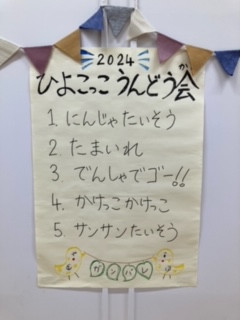 2024
ひよこっこうんどう会
1. にんじゃたいそう
2. たまいれ
3 でんしゃでゴー!!
4. かけっこかけっこ
5. サンサンたいそう
ガンバレ